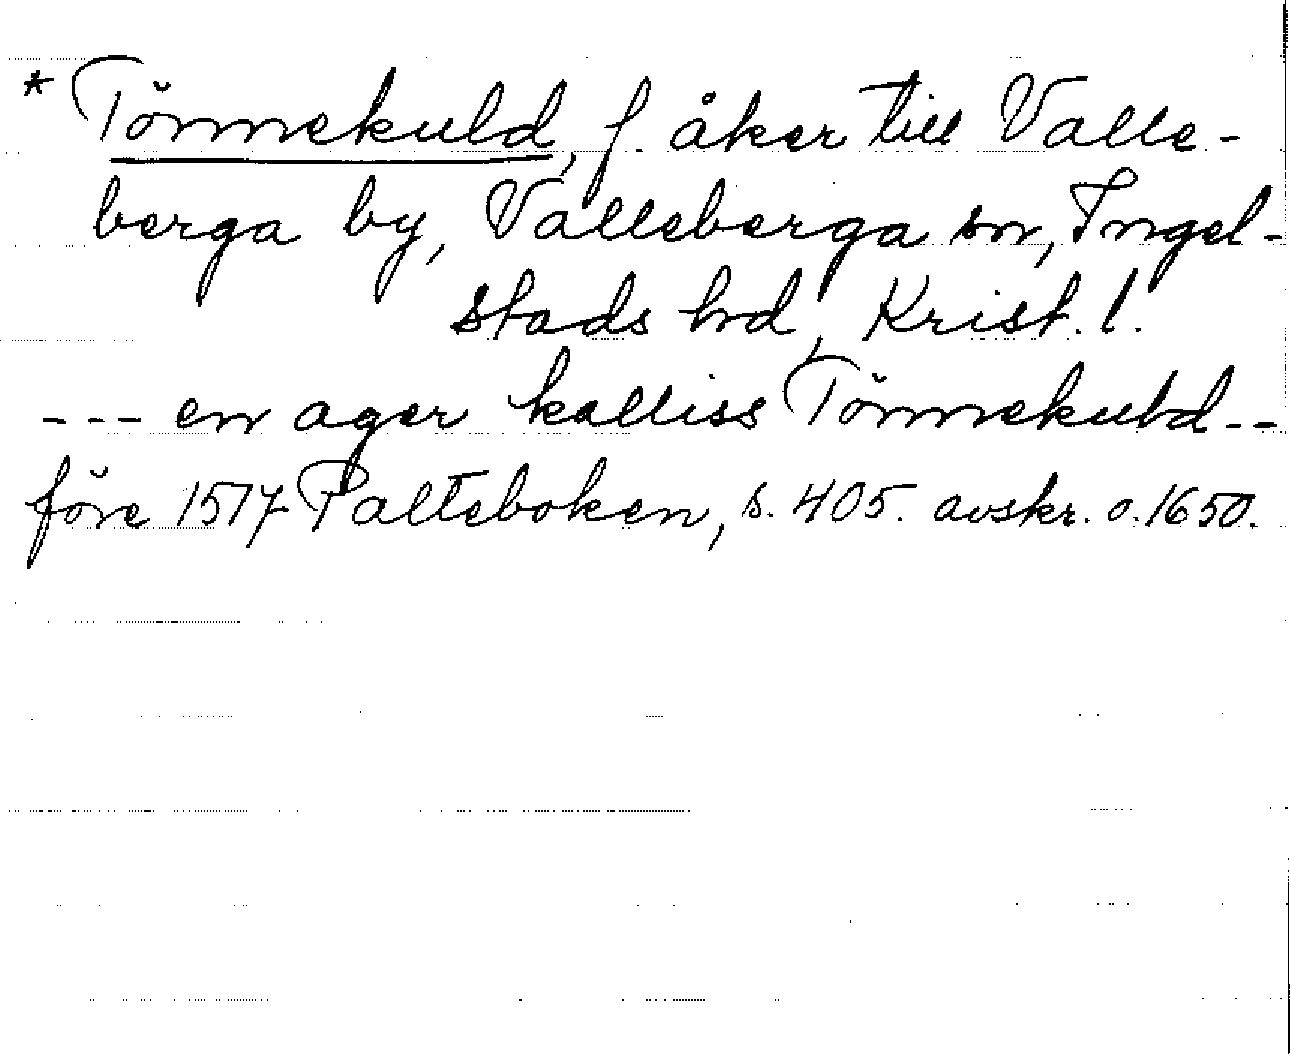 * Tönnekuld, f. åker till Valle-
berga by, Valleberga sn, Ingel-
stads hd, Krist. l.
--- en ager kalliss Tönnekuld--
före 1517 Palteboken, s. 405. avskr. o. 1650.